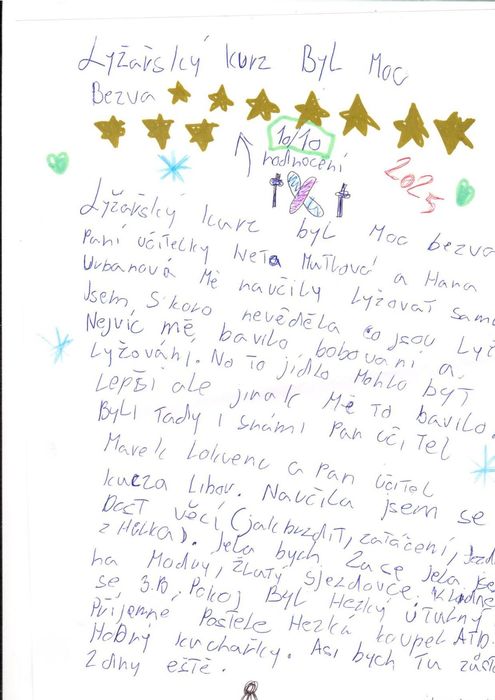 Lyžařský kurz Byl Moc
Bezva
10/10
hodnocení
2025
Lyžařský kurz byl Moc bezva
Paní učitelky Neta Mutlová a Hana
Urbanová Mě naučily Lyžovat samu
Jsem, Skoro nevěděla co jsou Lyž
Nejvíc mě bavilo bobování a
Lyžování. No to jídlo Mohlo být
Lepší ale jinak Mě to bavilo.
Byli tady i snámi Pan učitel
Marek Lokvenc a Pan učitel
kucza Libov. Naučila jsem se
Dost věcí (jak bruzdit, zatáčení, jezdi
z HůLka). Jela bych Zase Jela
na Modrý, Žlutý sjezdovce
se 3.B, Pokoj Byl Hezký útulný
Příjemné Postele Hezká koupel ATD.
Hodný kuchařky. Asi bych Tu zůst
2 dny eště.